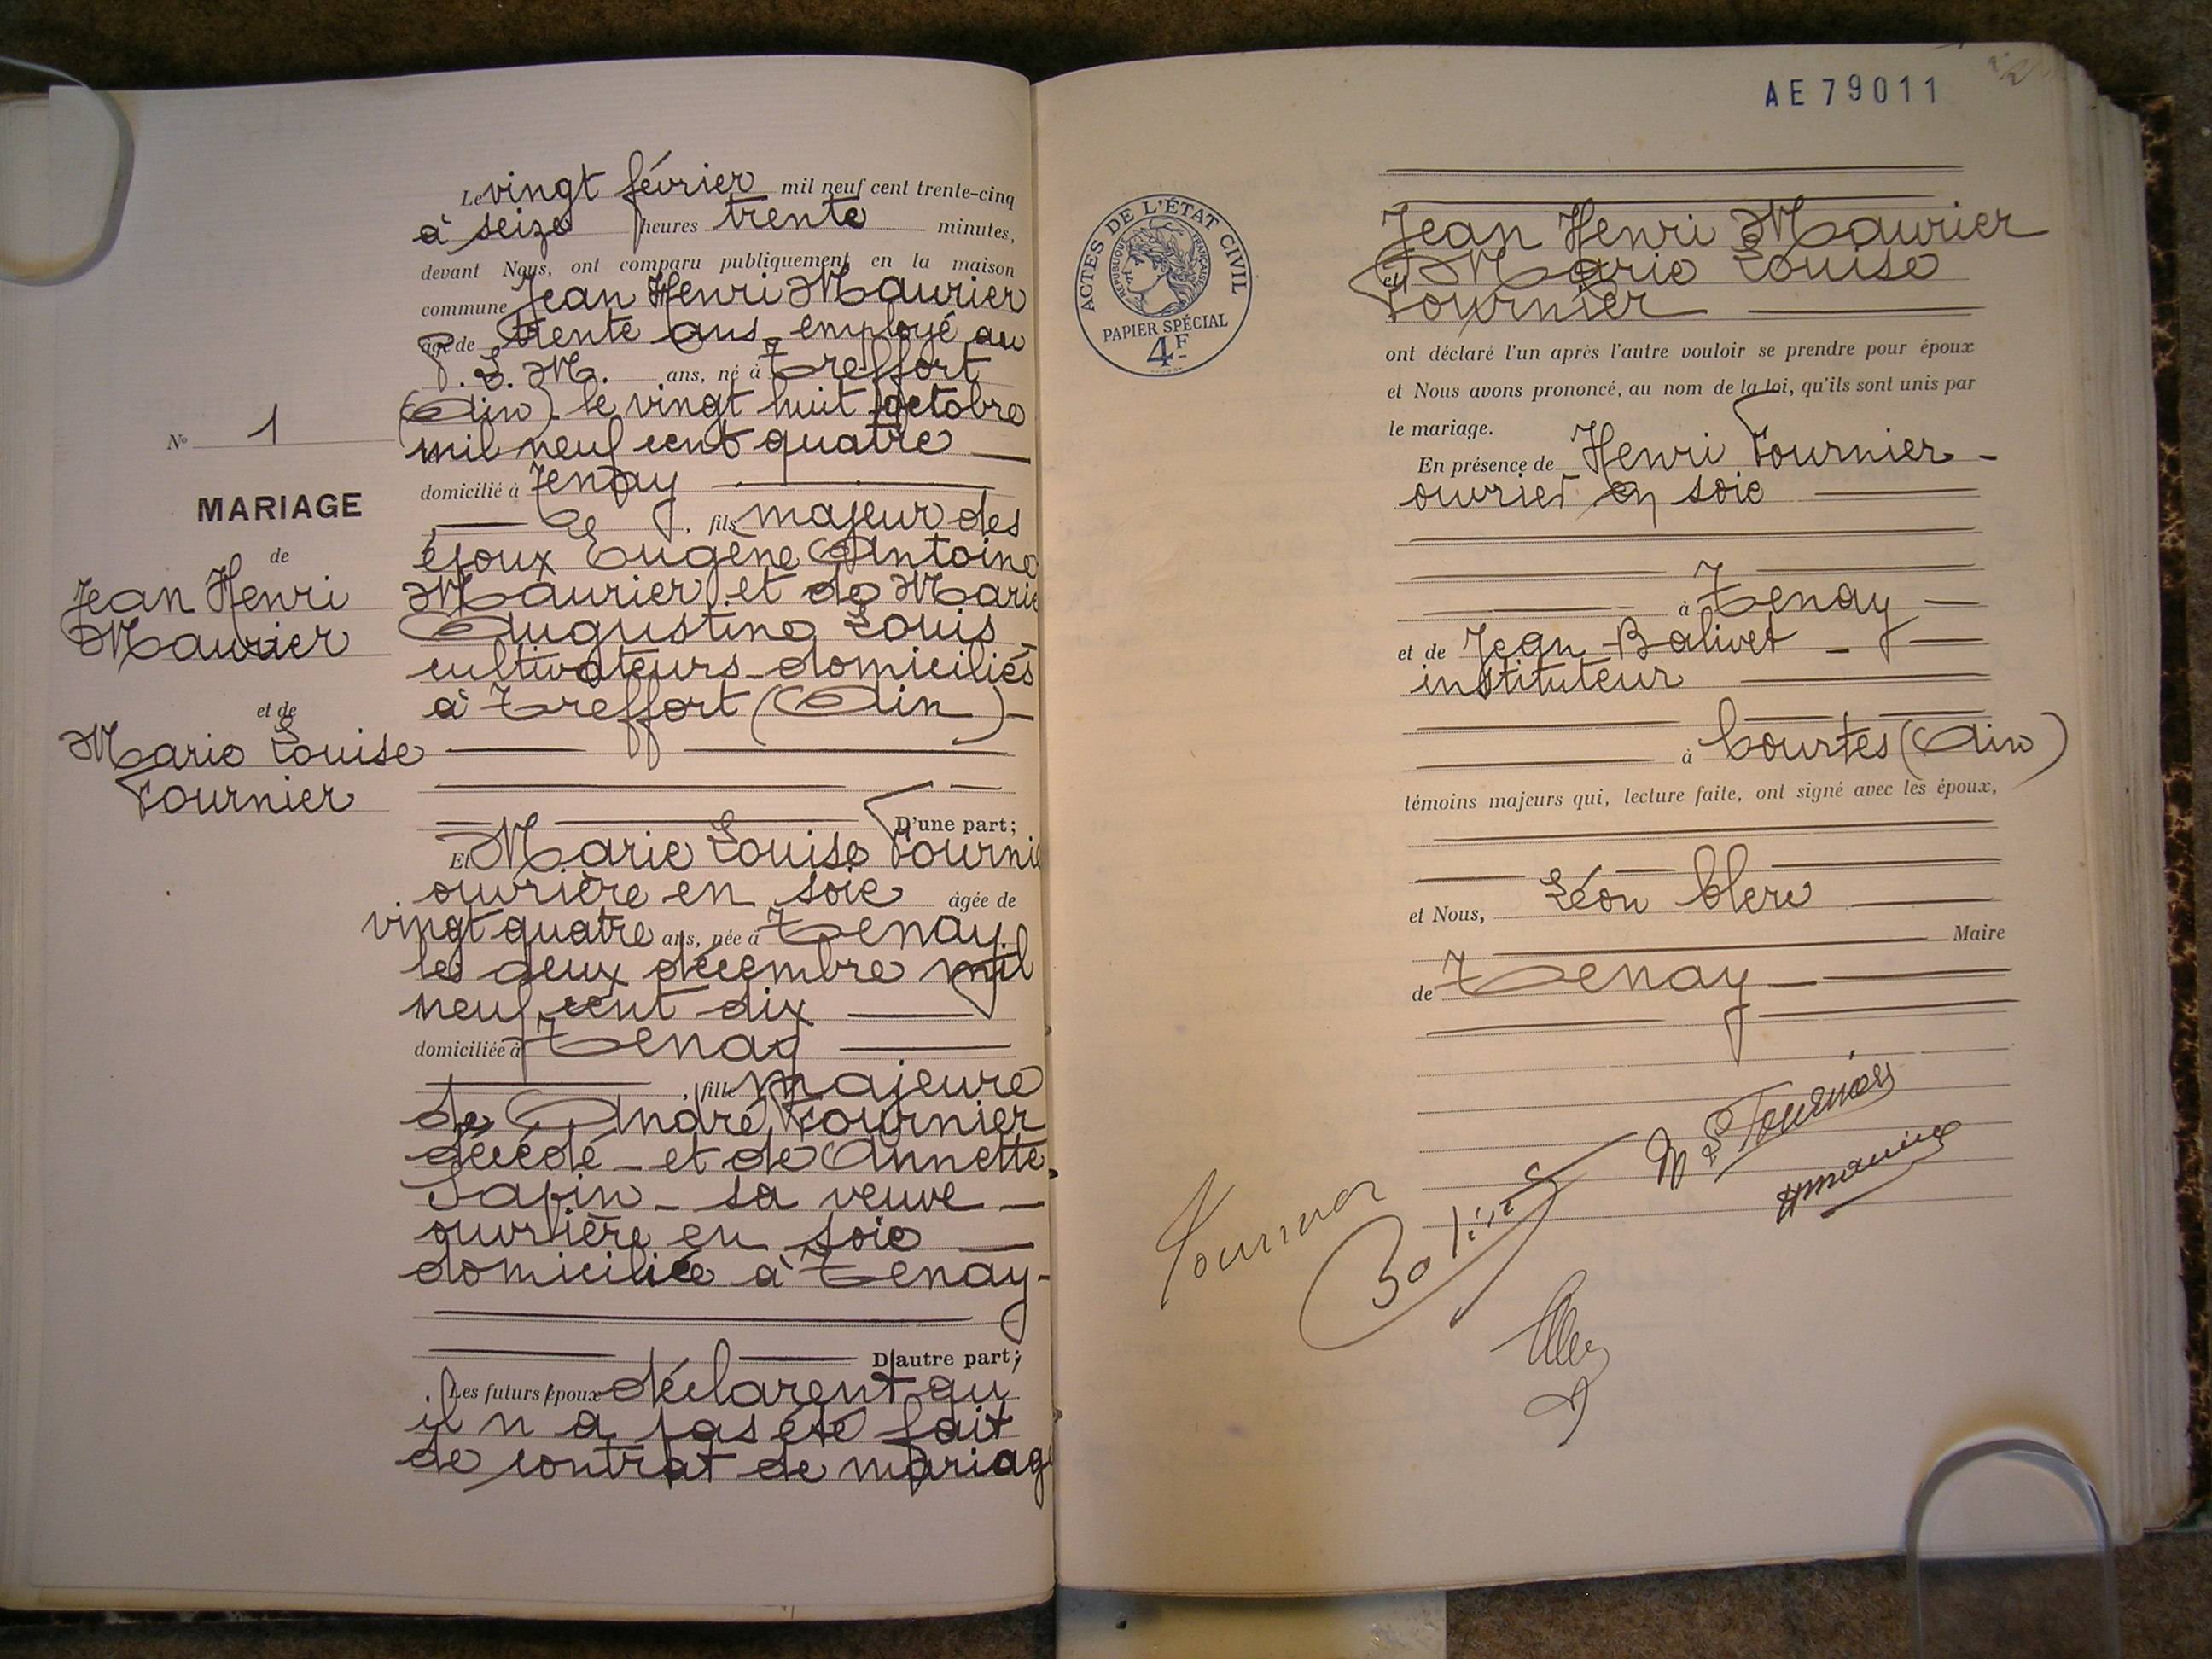 N° 1
MARIAGE
de
Jean Henri
Maurier
et de
Marie Louise
Fournier
Le vingt février mil neuf cent trente-cinq
à seize heures trente minutes,
devant Nous, ont comparu publiquement en la maison
commune Jean Henri Maurier
âgé de trente ans employé au
P. L. M. ans, né à Treffort
(Ain) le vingt huit octobre
mil neuf cent quatre
domicilié à Tenay
fils majeur des
époux Eugène Antoine
Maurier et de Marie
Augustine Louis
cultivateurs domiciliés
à Treffort (Ain)
D'une part;
Et Marie Louise Fournie
ouvrière en soie âgée de
vingt quatre ans, née à Tenay
le deux décembre mil
neuf cent dix
domiciliée à Tenay
, fille majeure
de André Fournier
décédé - et de Annette
Sapin - sa veuve -
ouvrière en soie
domiciliée à Tenay -
D'autre part;
Les futurs époux déclarent qu
il n a pas été fait
de contrat de mariage
AE 79011
ACTES DE L'ÉTAT CIVIL
RÉPUBLIQUE FRANÇAISE
PAPIER SPÉCIAL
4F
Jean Henri Maurier
et Marie Louise
Fournier
ont déclaré l'un après l'autre vouloir se prendre pour époux
et Nous avons prononcé, au nom de la loi, qu'ils sont unis par
le mariage.
En présence de Henri Fournier -
ouvrier en soie
à Tenay
et de Jean Balivet -
instituteur
à Courtes (Ain)
témoins majeurs qui, lecture faite, ont signé avec les époux,
et Nous, Léon Clerc
Maire
de Tenay
M L Fournier
HMaurier
Fournier
Balivet